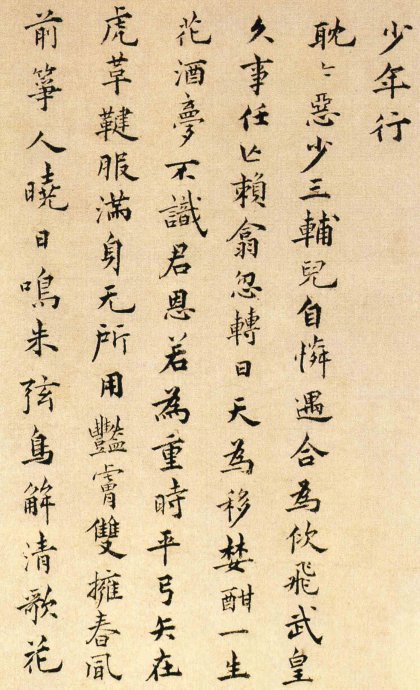 少年行
耽〻惡少三輔兒自憐遇合為佽飛武皇
久事任亾賴翕忽轉日天為移婪酣一生
花酒夢不識君恩若為重時平弓矢在
虎革鞬服滿身无所用豔膚雙擁春風
前箏人曉日鳴朱弦鳥解清歌花